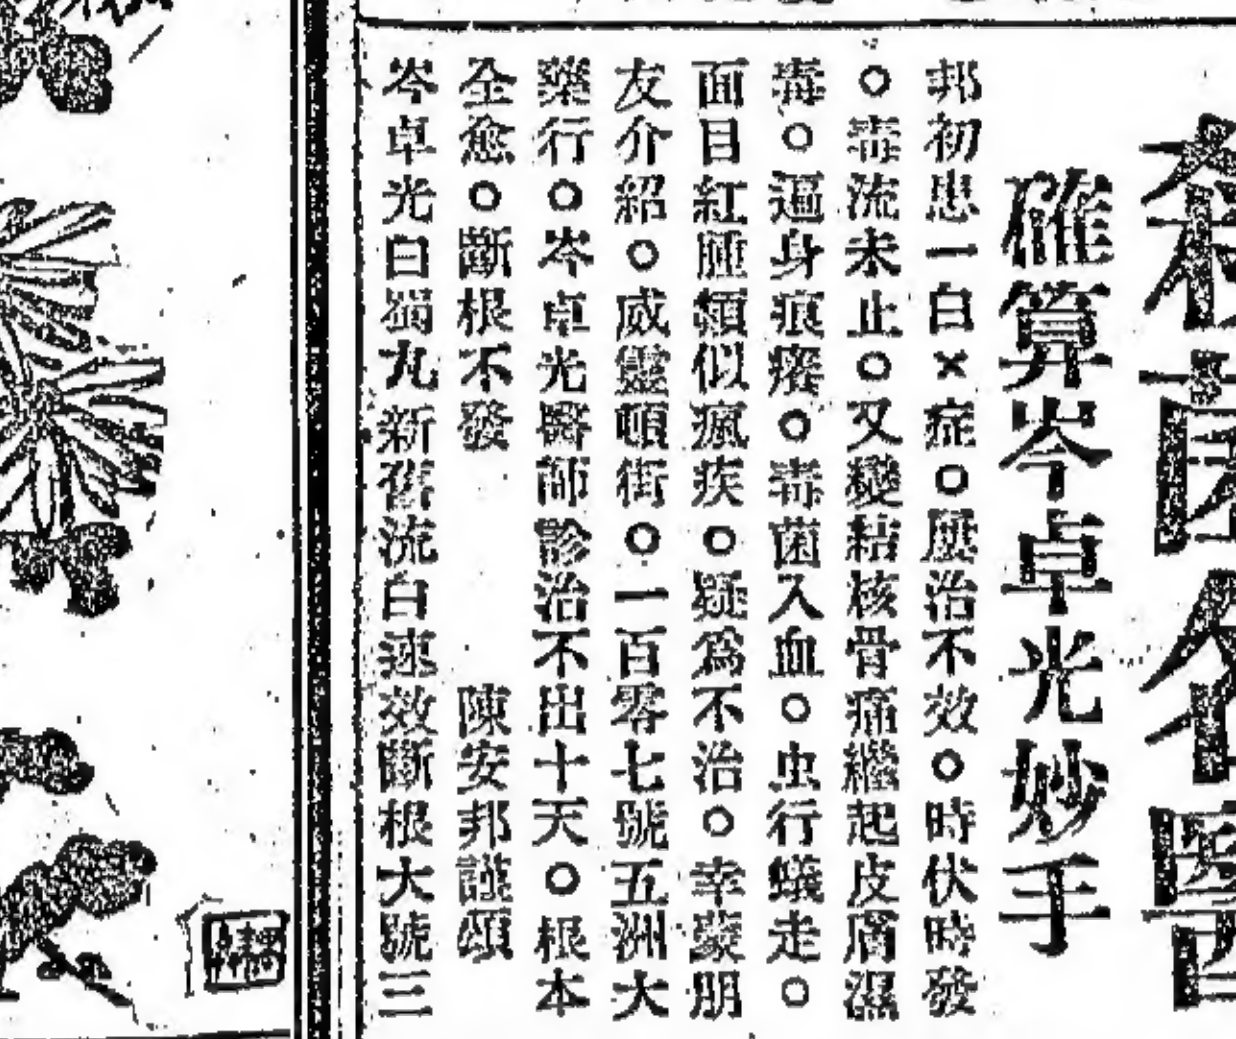 確算岑卓光妙手
邦初患一白×症○屢治不效○時伏時發
○毒流未止○又變結核骨痛繼起皮膚濕
毒○逼身痕癢○毒菌入血○虫行蟻走○
面目紅腫類似瘋疾○疑為不治○幸蒙朋
友介紹○威靈頓街○一百零七號五洲大
藥行○岑卓光醫師診治不出十天○根本
全愈○斷根不發 陳安邦謹頌
岑卓光白濁丸新舊流白速效斷根大號三